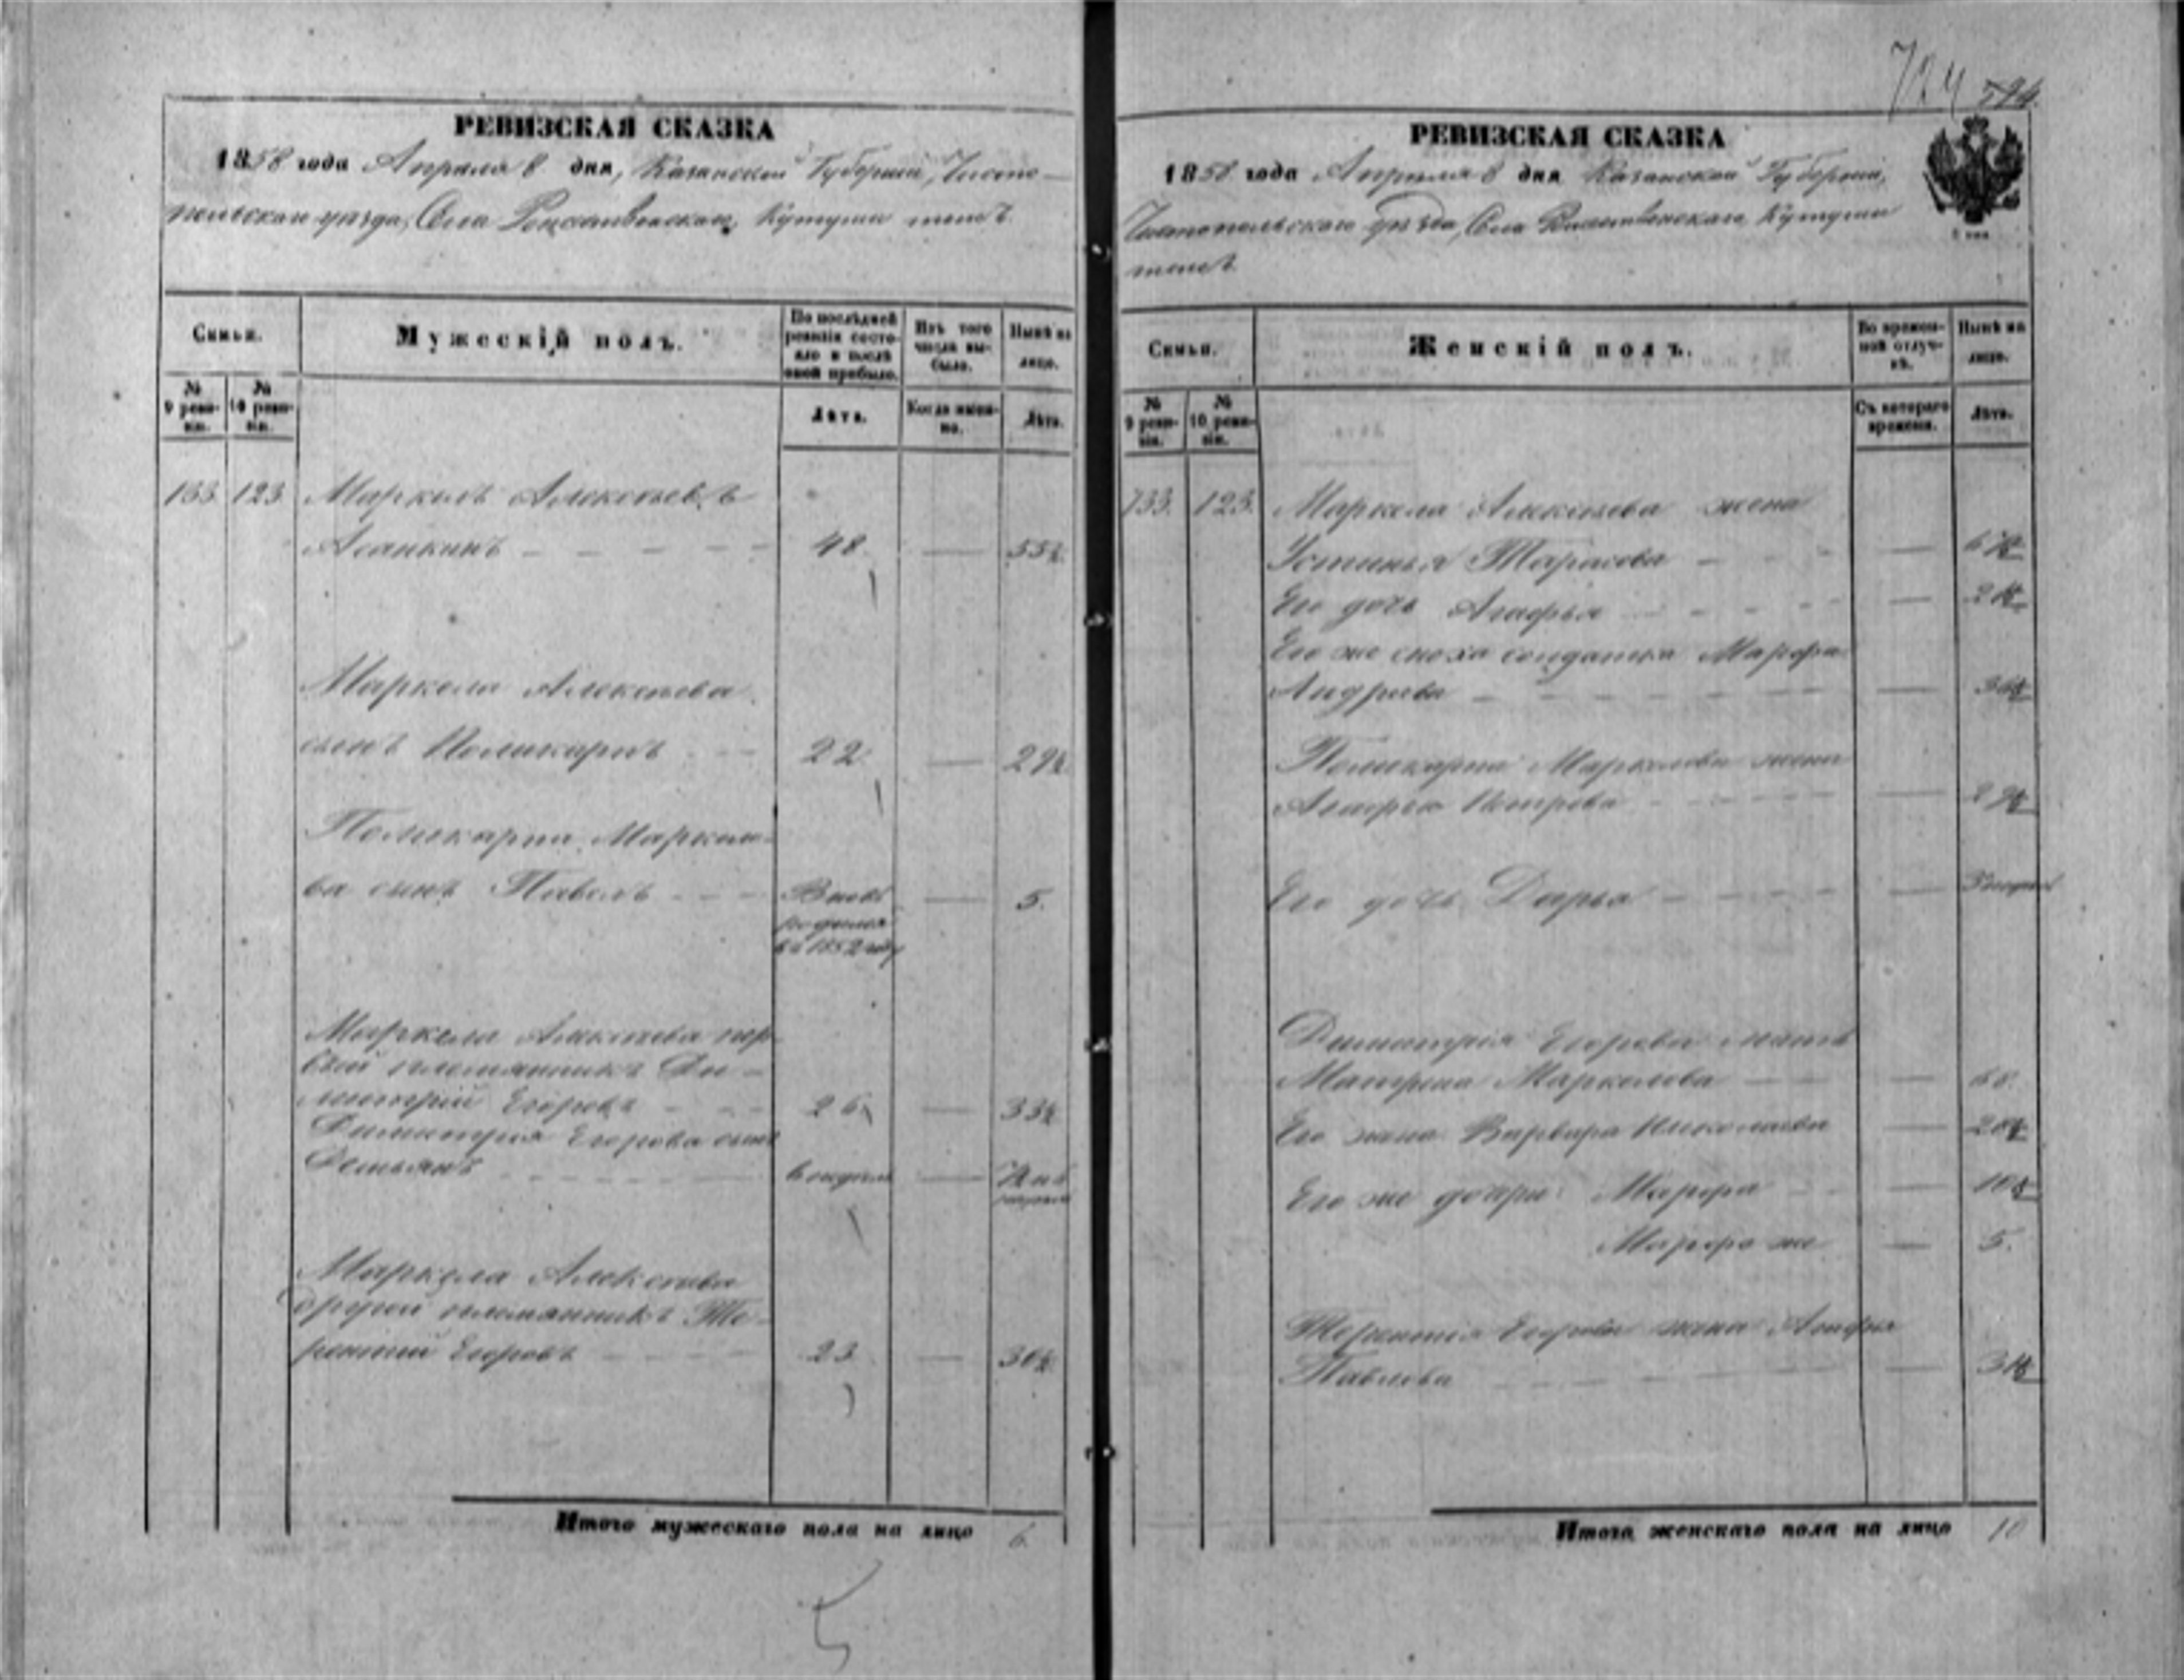 724 594.
РЕВИЗСКАЯ СКАЗКА
1858 года Апреля 8 дня, Казанской Губернiи, Чисто-
польскаго уезда, Села Рождественскаго, Кутуши тожъ.
Семьи.
Мужескiй полъ.
По последней ревизiи состояло и после оной прибыло.
Изъ того числа выбыло.
Ныне на лицо.
№ 9 ревизiи.
№ 10 ревизiи.
Лета.
Когда именно.
Лета.
133. 123. Маркелъ Алексеевъ
Асанкинъ 48. 55½
Маркела Алексеева
сынъ Поликарпъ 22. 29½
Поликарпа Маркело-
ва сынъ Павелъ Вновь 5.
родился
въ 1852 году
Маркела Алексеева пер-
вый племянникъ Ди-
митрiй Егоровъ 26. 33½
Димитрiя Егорова сынъ
Демьянъ 6 недель 7½
Маркела Алексеева
другой племянникъ Те-
рентiй Егоровъ 23 30½
Итого мужескаго пола на лицо 6.
5
РЕВИЗСКАЯ СКАЗКА
1858 года Апреля 8 дня Казанской Губернiи,
Чистопольскаго уезда, Села Рождественскаго, Кутуши
тожъ.
Семьи.
Женскiй полъ.
Во временной отлучкѣ.
Ныне на лицо.
№ 9 ревизiи.
№ 10 ревизiи.
Съ котораго времени.
Лета.
133. 123. Маркела Алексеева жена
Устинья Тарасова
Его дочь Агафья
Его же сноха солдатка Марфа
Андреева
Поликарпа Маркелова жена
Агафья Петрова
Его дочь Дарья
Димитрiя Егорова мать
Матрена Маркелова 60.
Его жена Варвара Николаева
Его же дочери: Марфа 10½
Марфа же 5.
Терентiя Егорова жена Агафья
Павлова 31½
Итого женскаго пола на лицо 10